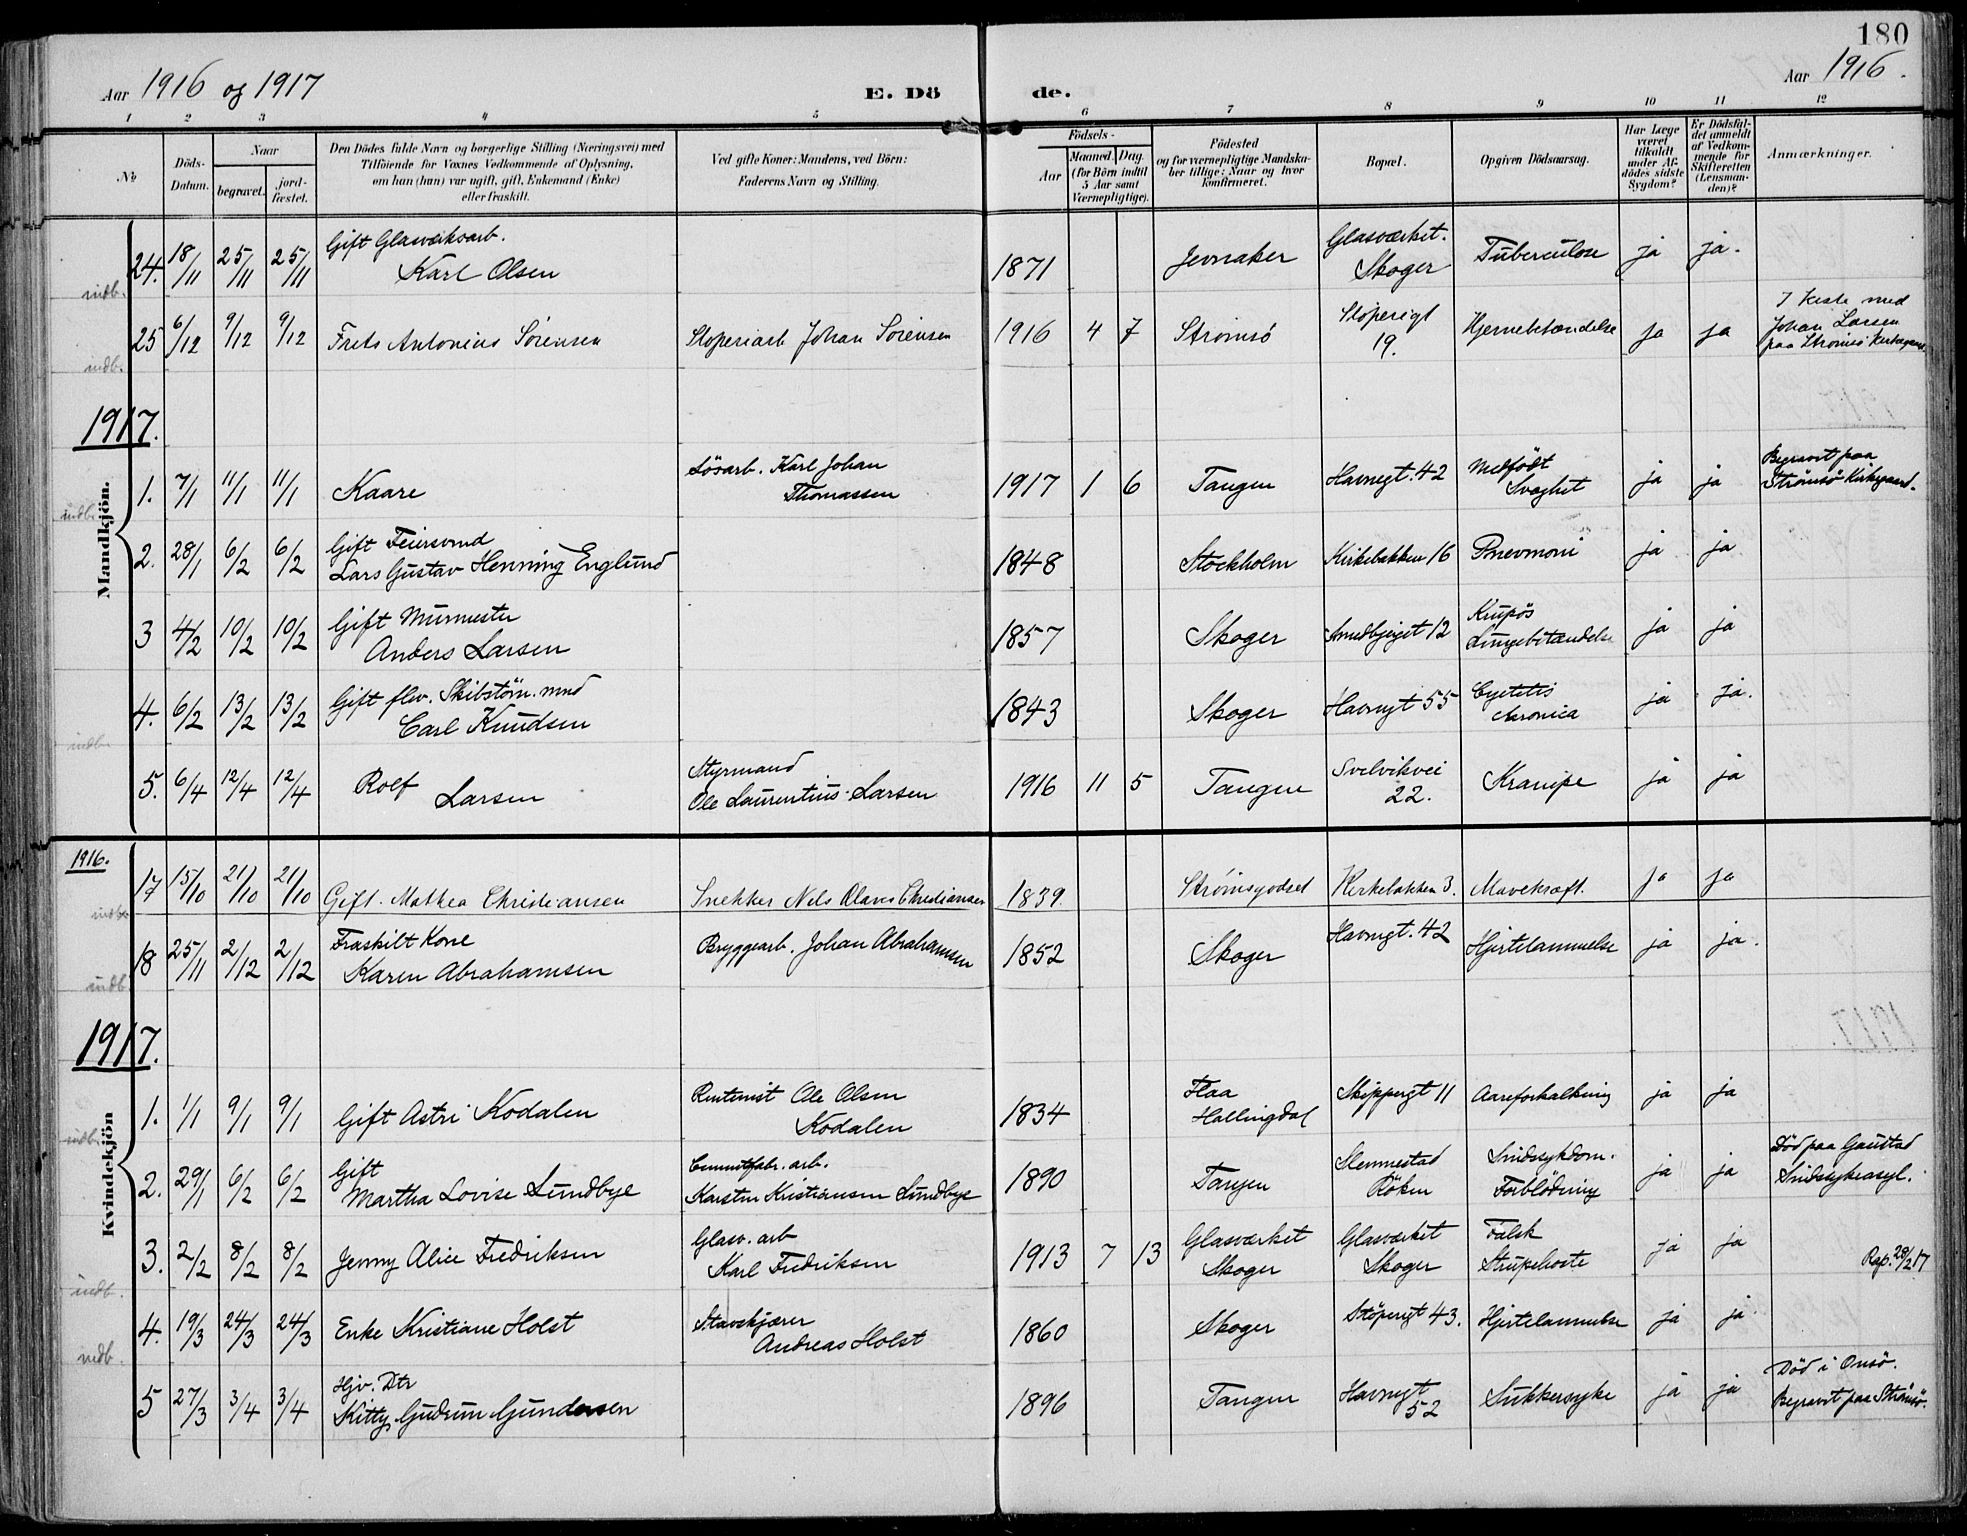 180
Aar 1916 og 1917
E. Dö de.
Aar 1916.
1 2 3 4 5 6 7 8 9 10 11 12
No
Döds-Datum.
Naar
begravet.
jordfæstet.
Den Dödes fulde Navn og borgerlige Stilling (Næringsvei) med
Tilföiende for Voxnes Vedkommende af Oplysning,
om han (hun) var ugift, gift, Enkemand (Enke)
eller fraskilt.
Ved gifte Koner: Mandens, ved Börn:
Faderens Navn og Stilling.
Födsels-
Aar
Maaned. Dag.
(for Börn indtil
5 Aar samt
Værnepligtige).
Födested
og for værnepligtige Mandskaber tillige: Naar og hvor
konfirmeret.
Bopæl.
Opgiven Dödsaarsag.
Har Læge
været
tilkaldt
under Afdödes sidste
Sygdom?
Er Dödsfaldet anmeldt
af Vedkommende for
Skifteretten
(Lensmanden)?
Anmærkninger.
Mandkjön.
24. 18/11 25/11 25/11 Gift Glasværksarb.
Karl Olsen 1871 Jevnaker Glasværket.
Skoger Tuberculose ja ja.
indb.
25 6/12 9/12 9/12 Frets Antonius Sörensen Stoperiarb Johan Sörensen 1916 4 7 Strömsö Stöperigt
19. Hjernebetændelse ja ja I Kiste med
Johan Larsen
paa Strömsö Kirkegaard.
indb.
1917.
1. 7/1 11/1 11/1 Kaare Lösarb. Karl Johan
Thomassen 1917 1 6 Tangen Havnegt. 42 Medfödt
Svaghet ja ja Begravet paa
Strömsö Kirkegaard.
indb.
2. 28/1 6/2 6/2 Gift Feiersvend
Lars Gustav Henning Englund 1848 Stockholm Kirkebakken 16 Pnevmoni ja ja
3 4/2 10/2 10/2 Gift Murmester
Anders Larsen 1857 Skoger 12 Krupös
Lungebetændelse ja ja
4. 6/2 13/2 13/2 Gift flv. Skibstöm. mnd
Carl Knudsen 1843 Skoger Havnegt 55 Cystitis
chronica ja ja.
indb.
5. 6/4 12/4 12/4 Rolf
Larsen Styrmand
Ole Laurentius Larsen 1916 11 5 Tangen Svelvikvei
22. Krampe ja ja
1916.
Kvindekjön
17 15/10 21/10 21/10 Gift. Mathea Christiansen Snekker Nels Olaves Christiansen 1839. Strömsgodset Kirkebakken 3. Mavekræft. ja ja
indb.
18 25/11 2/12 2/12 Fraskilt Kone
Karen Abrahamsen Bryggearb. Johan Abrahamsen 1852 Skoger Havnegt. 42 Hjertelammelse ja ja.
indb
1917.
1. 1/1 9/1 9/1 Gift Astri Kodalen Rentenist Ole Olsen
Kodalen 1834 Flaa
Hallingdal Skippergt 11 Aareforkalkning ja ja
indb.
2. 29/1 6/2 6/2 Gift
Martha Lovise Lundbye Cementfabr. arb.
Karsten Kristiansen Lundbye 1890 Tangen Slemmestad
Röken Sindssykdom.
Forblödning ja ja Död paa Gaustad
Sindssykeasyl.
3. 2/2 8/2 8/2 Jenny Alice Fredriksen Glasv. arb
Karl Fredriksen 1913 7 13 Glasværket
Skoger Glasværket
Skoger Falsk
Strupehoste ja ja Rap. 28/2 17
indb.
4. 19/3 24/3 24/3 Enke Kristiane Holst Stavskjærer
Andreas Holst 1860 Skoger Stöperigt 43. Hjertelammelse ja ja
indb.
5 27/3 3/4 3/4 Hjv. Dtr
Kitty Gudrun Gundersen 1896 Tangen Havnegt
52 Sukkersyke ja ja Död i Onsö.
Begravet paa Strömsö.